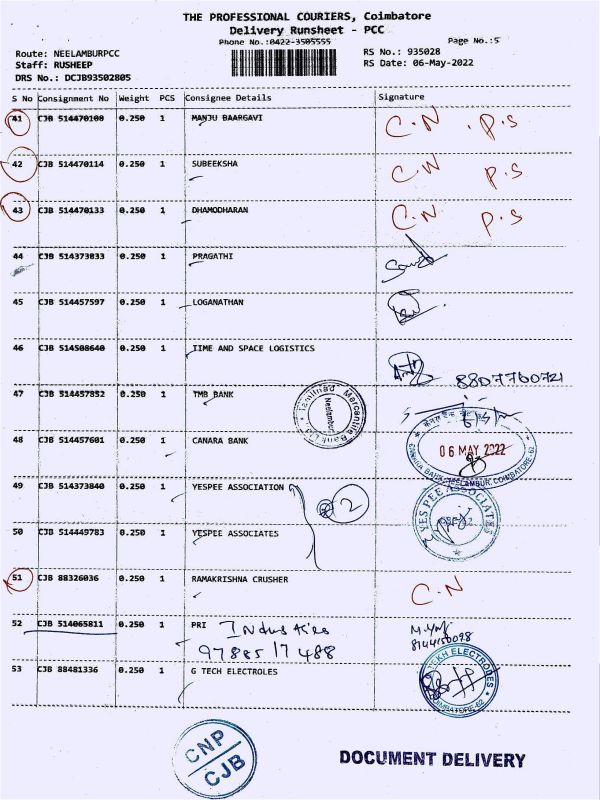 THE PROFESSIONAL COURIERS, Coimbatore
Delivery Runsheet - PCC
Phone No.:0422-3505555
Page No.:5
Route: NEELAMBURPCC
RS No.: 935028
Staff: RUSHEEP
RS Date: 06-May-2022
DRS No.: DCJB93502805
S No Consignment No Weight PCS Consignee Details Signature
41 CJB 514470100 0.250 1 MANJU BAARGAVI C.N . P.S
42 CJB 514470114 0.250 1 SUBEEKSHA C.N P.S
43 CJB 514470133 0.250 1 DHAMODHARAN C.N P.S
44 CJB 514373833 0.250 1 PRAGATHI
45 CJB 514457597 0.250 1 LOGANATHAN
46 CJB 514508640 0.250 1 TIME AND SPACE LOGISTICS
8807700721
47 CJB 514457852 0.250 1 TMB BANK
Tamilnad Mercantile Bank Ltd
Neelambur
48 CJB 514457601 0.250 1 CANARA BANK
06 MAY 2022
CANARA BANK, NEELAMBUR, COIMBATORE-62
49 CJB 514373840 0.250 1 YESPEE ASSOCIATION 2
YESPEE ASSOCIATES
50 CJB 514449783 0.250 1 YESPEE ASSOCIATES
51 CJB 88326036 0.250 1 RAMAKRISHNA CRUSHER C.N
52 CJB 514065811 0.250 1 PRI Industries
97885 17488
8144150098
53 CJB 88481336 0.250 1 G TECH ELECTROLES
ELECTRODES
COIMBATORE-62
CNP
CJB
DOCUMENT DELIVERY